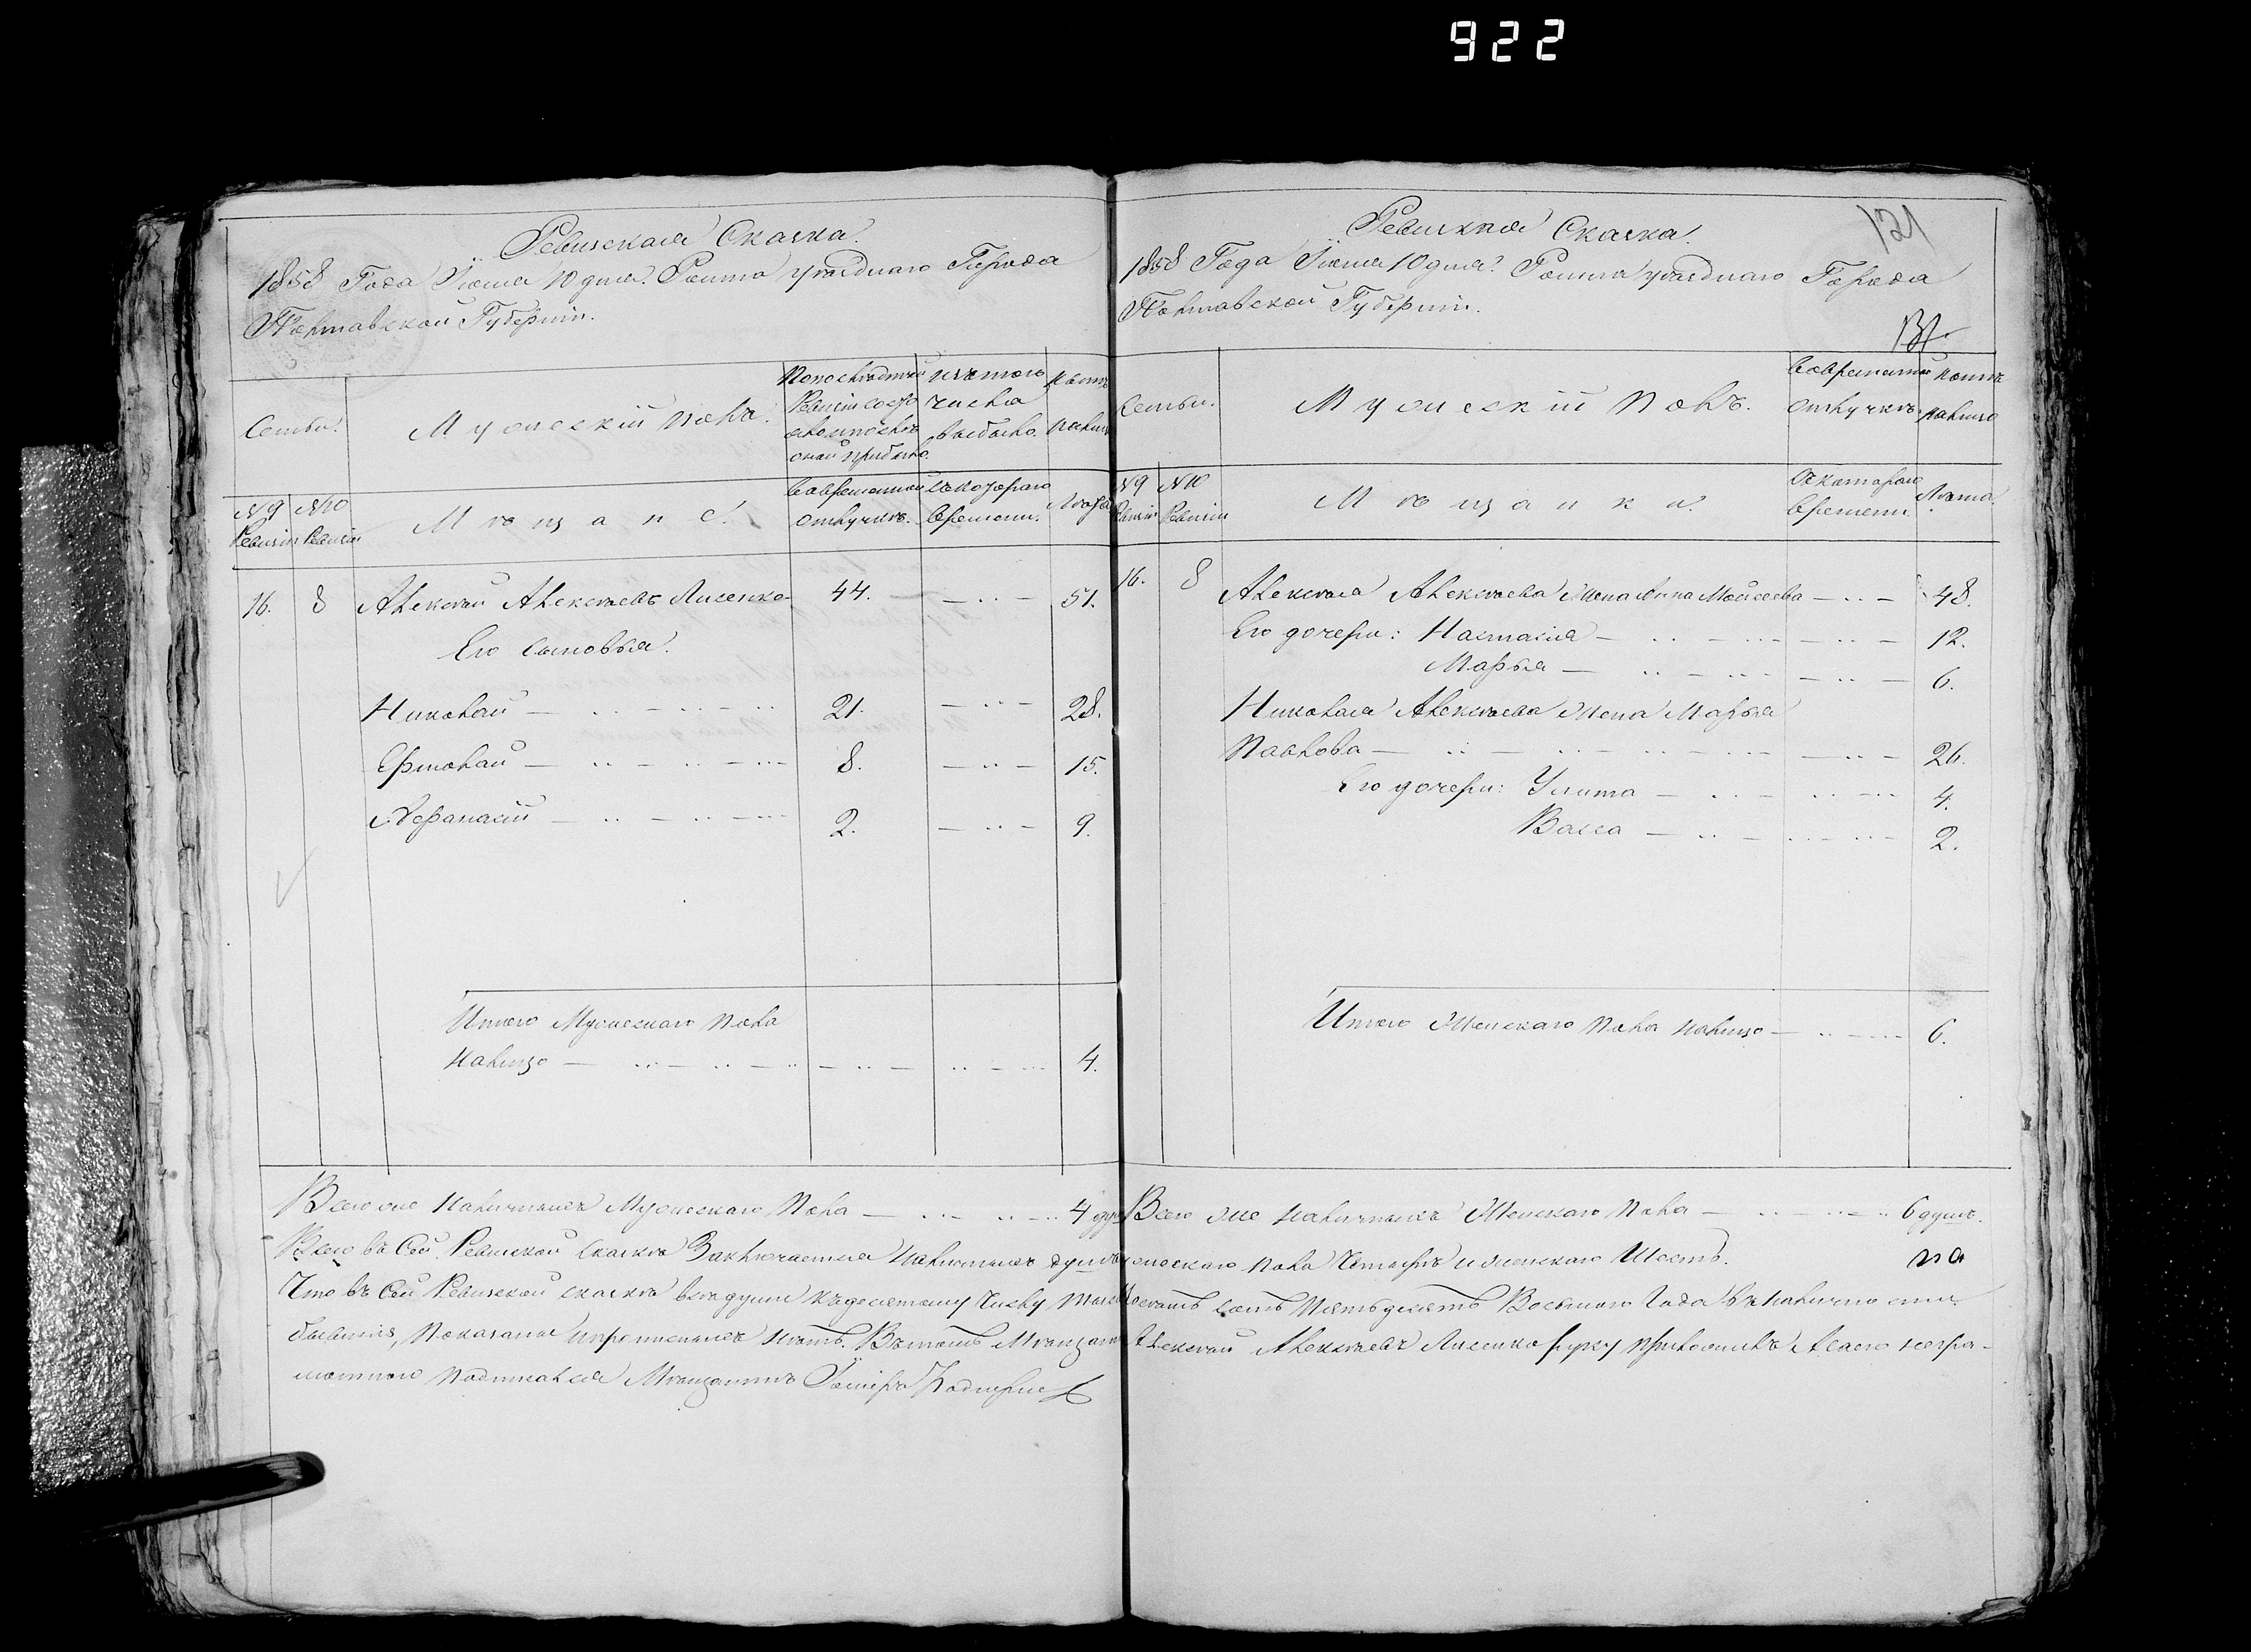 922
Ревизская Сказка.
1858 Года Іюня 10 дня. Ромна уѣзднаго Города
Полтавской Губерніи.
Семьи.
Мужескій полъ.
По последней
Ревизіи состо
яло и послѣ
оной прибыло.
изъ того
числа
выбыло.
Нынѣ
налицо
№ 9 Ревизіи
№ 10 Ревизіи
Мѣщане.
Во временной
отлучкѣ.
съ котораго
времени.
Лѣта
16. 8 Алексѣй Алексѣевъ Лисенко 44. 51.
Его сыновья.
Николай 21. 28.
Ермолай 8. 15.
Афанасій 2. 9.
Итого Мужескаго пола
налицо 4.
Всего же наличныхъ Мужескаго пола 4
121
Ревизкая Сказка.
1858 Года Іюня 10 дня. Ромна уѣзднаго Города
Полтавской Губерніи.
Семьи.
Мужескій полъ.
Во временной
отлучкѣ
Нынѣ
налицо
№ 9 Ревизіи
№ 10 Ревизіи
Мѣщанки.
Съ котораго
времени.
Лѣта.
16. 8 Алексѣя Алексѣева жена Анна Мойсеева 48.
Его дочери: Настасия 12.
Марья 6.
Николая Алексѣева жена Марья
Павлова 26.
Его дочери: Улита 4.
Васса 2.
Итого Женскаго пола налицо 6.
Всего же наличныхъ Женскаго пола 6 душъ.
Всего въ Сей Ревизской сказкѣ Заключается наличныхъ душъ мужескаго пола Четыре и женскаго Шесть.
Что въ Сей Ревизской сказкѣ всѣ души къ десятому Числу Пятьдесятъ Восьмого Года въ наличности
бывшія, показаны и прописныхъ нѣтъ. Въ томъ Мѣщанинъ Алексѣй Алексѣевъ Лисенко руку приложилъ А за его негра-
мотного подписался Мѣщанинъ